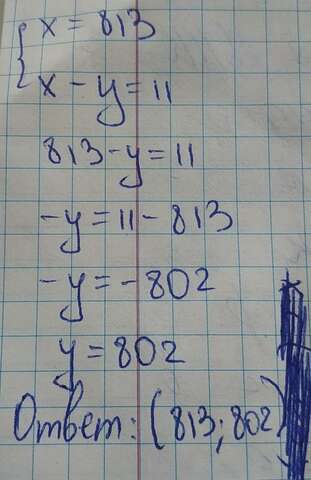 { x = 813
x - y = 11
813 - y = 11
-y = 11 - 813
-y = -802
y = 802
Ответ: (813; 802)